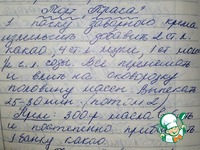 Торт "Праса"
1 пакет заварного крема
измельчить добавить 2 ст.л.
какао, 4 ст.л. муки, 1 ст.
ч.л. соды. Все перемешать
и влить на сковородку
половину массы. Выпекать
25-30 мин. (пот. м 2)
Крем: 300 гр масла
и постепенно
1 банку какао.